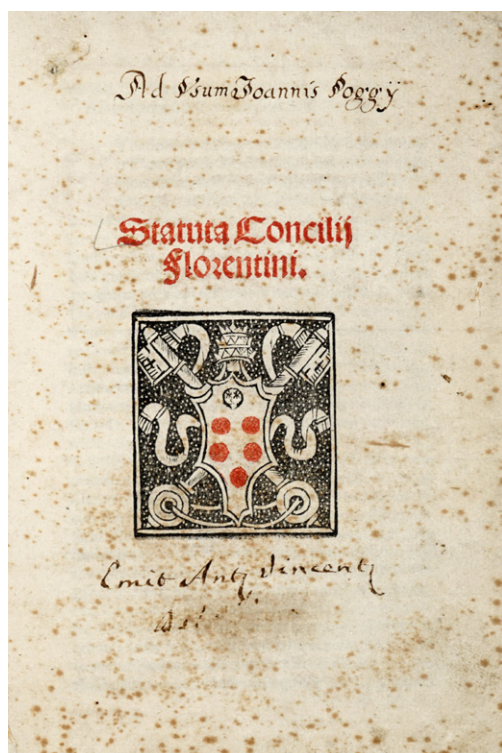 Ad Usum Joannis Poggÿ
Statuta Concilij
Florentini.
Emit Antꝫ Vincentꝫ